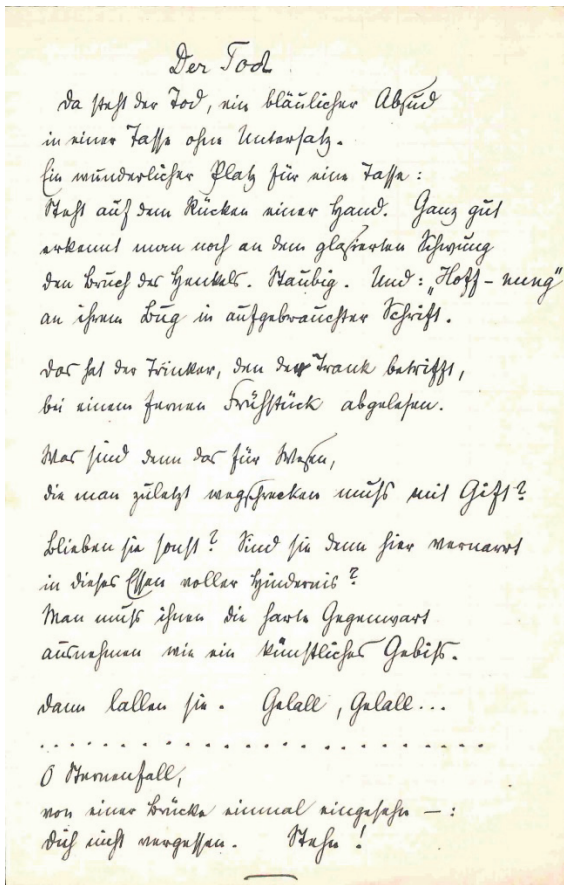 Der Tod
Da steht der Tod, ein bläulicher Absud
in einer Tasse ohne Untersatz.
Ein wunderlicher Platz für eine Tasse:
Steht auf dem Rücken einer Hand. Ganz gut
erkennt man noch an dem glasierten Schwung
den Bruch des Henkels. Staubig. Und: „Hoff-nung"
an ihrem Bug in aufgebrauchter Schrift.
Das hat der Trinker, den der Trank betrifft,
bei einem fernen Frühstück abgelesen.
Was sind denn das für Wesen,
die man zuletzt wegschrecken muß mit Gift?
Blieben sie sonst? Sind sie denn hier vernarrt
in dieses Essen voller Hindernis?
Man muß ihnen die harte Gegenwart
ausnehmen wie ein künstliches Gebiß.
Dann lallen sie. Gelall, Gelall...
. . . . . . . . . . . . . . . . . . . . . . . .
O Sternenfall,
von einer Brücke einmal eingesehn —:
Dich nicht vergessen. Stehn!